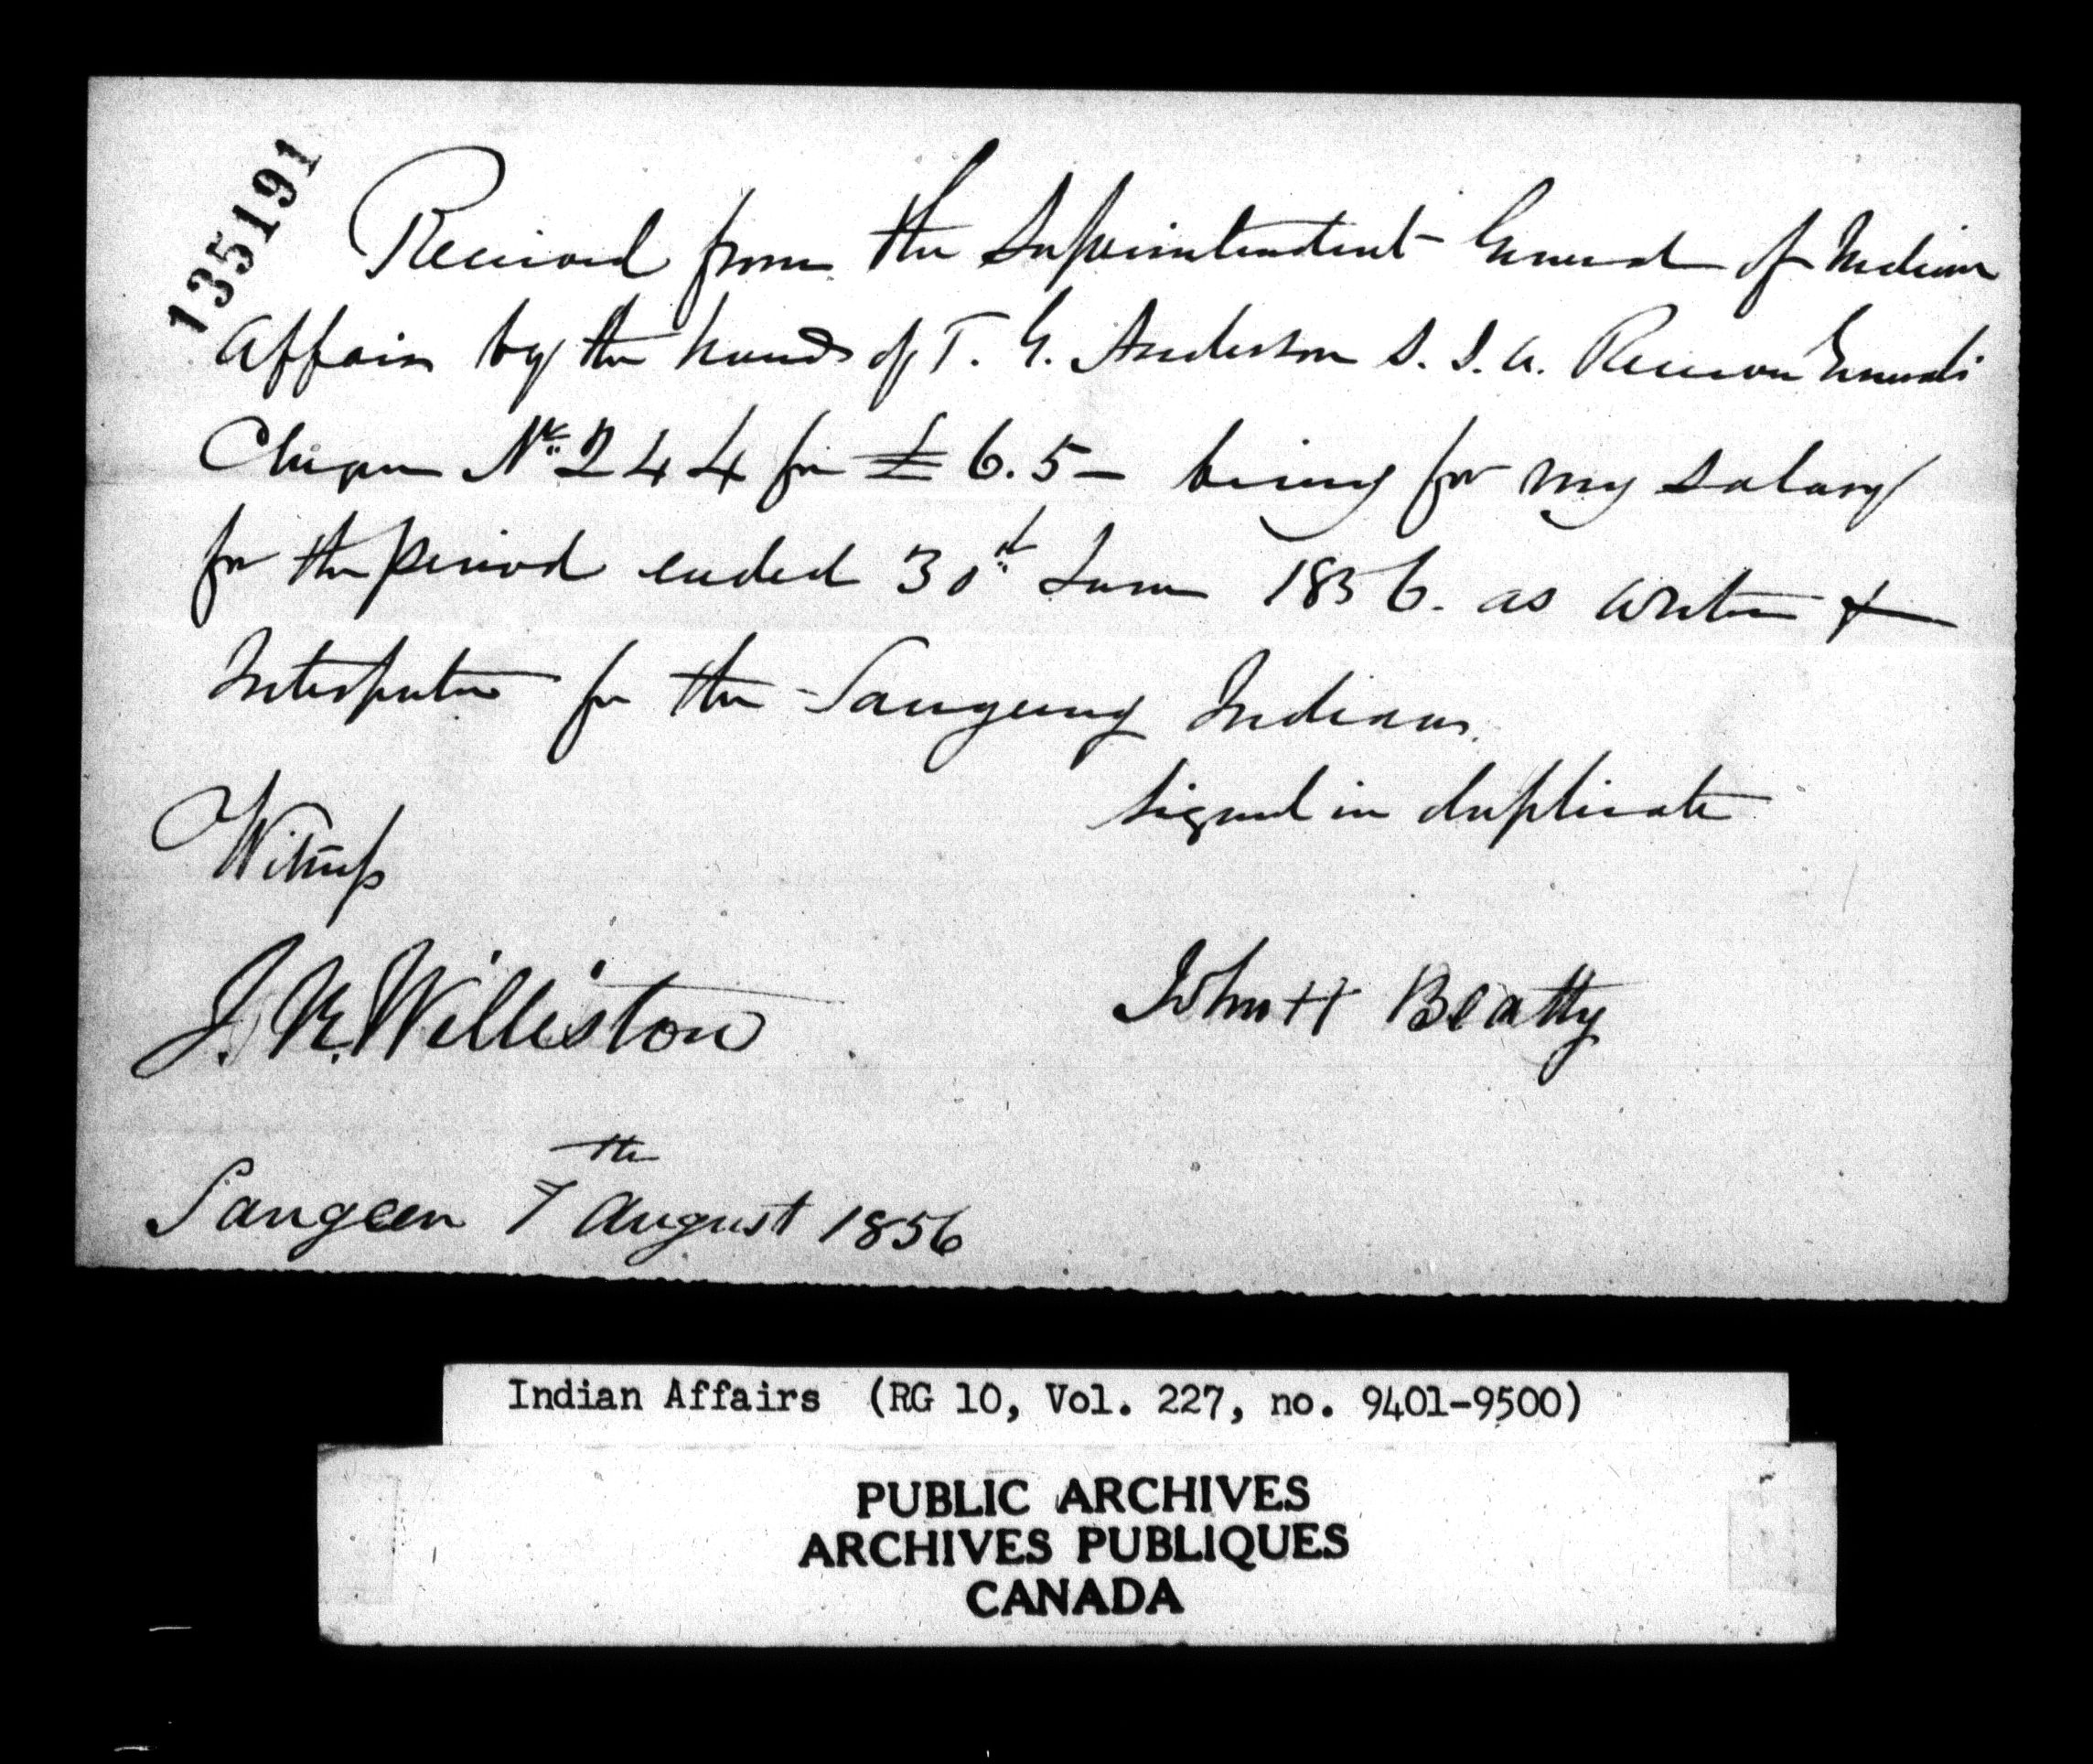 135191
Received from the Superintendent General of Indian
Affairs by the hands of T. G. Anderson S. I. A. Receiver Generals
Cheque No. 244 for £ 6. 5 – being for my Salary
for the period ended 30th June 1856. as writer &
Interpreter for the Saugeeng Indians.
Signed in duplicate
Witness
J. R. Williston
John H Beatty
Saugeen 7th August 1856
Indian Affairs (RG 10, Vol. 227, no. 9401-9500)
PUBLIC ARCHIVES
ARCHIVES PUBLIQUES
CANADA